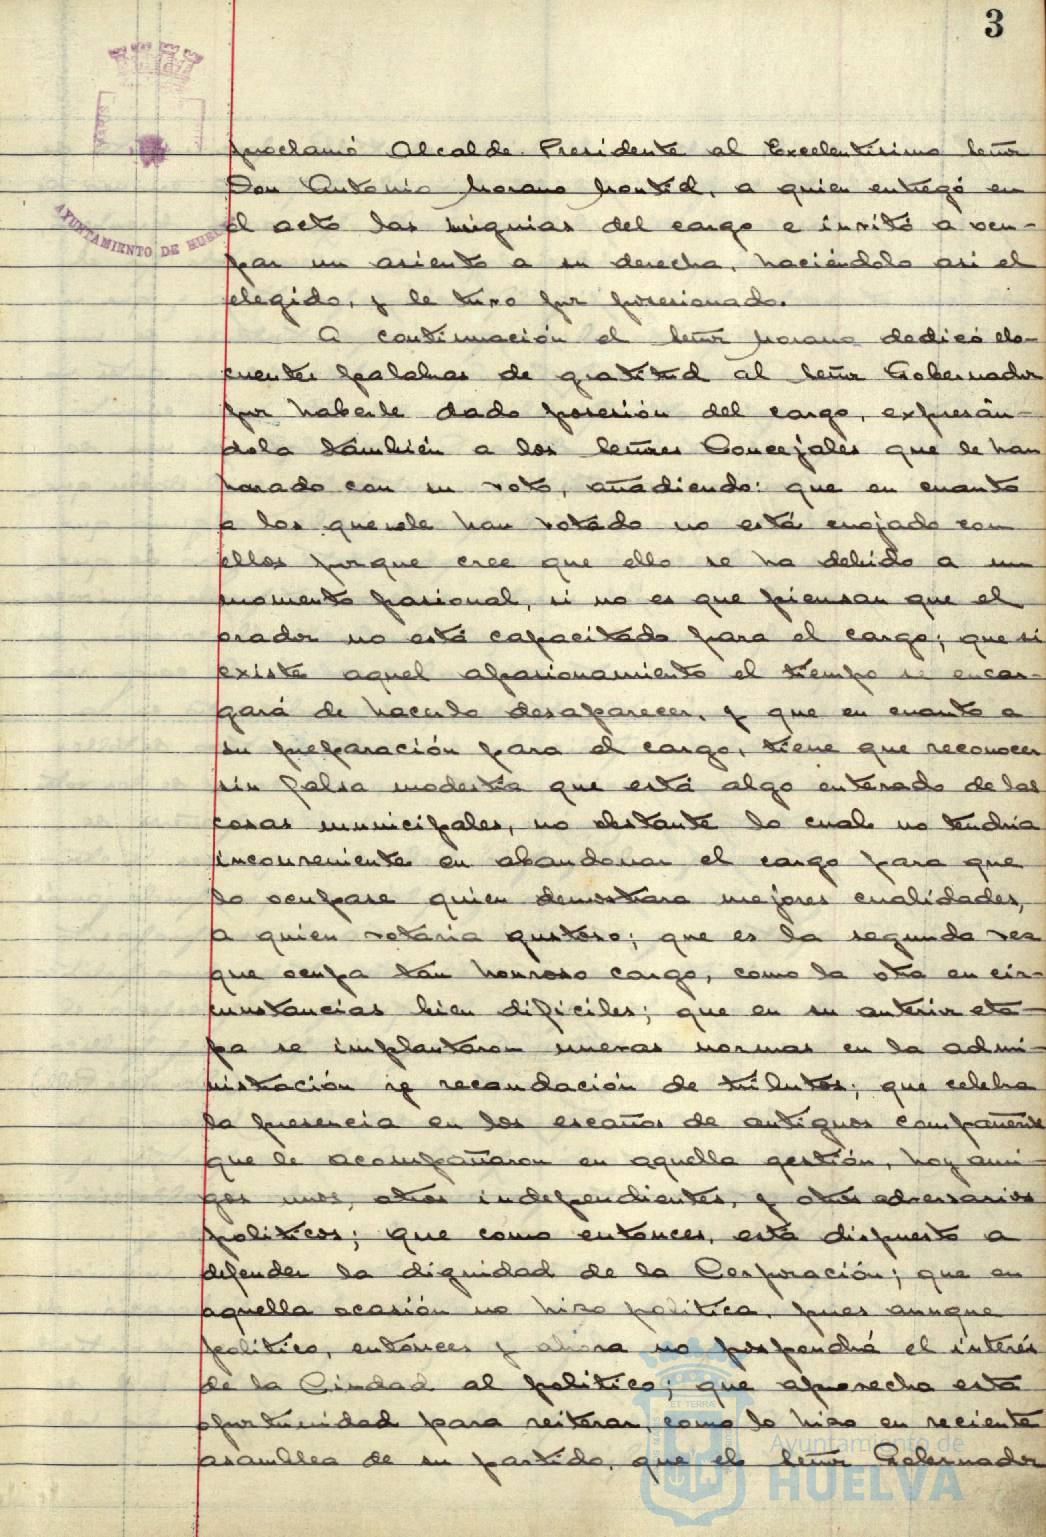 3
AYUNTAMIENTO DE HUELVA
proclamó Alcalde Presidente al Excelentísimo Señor
Don Antonio Morano Montiel, a quien entregó en
el acto las insignias del cargo e invitó a ocu-
par un asiento a su derecha, haciéndolo asi el
elegido, y le tuvo por posesionado.
A continuación el Señor Morano dedicó elo-
cuentes palabras de gratitud al Señor Gobernador
por haberle dado posesión del cargo, expresán-
dola también a los Señores Concejales que le han
honrado con su voto, añadiendo: que en cuanto
a los que no le han votado no está enojado con
ellos porque cree que ello se ha debido a un
momento pasional, si no es que piensan que el
orador no está capacitado para el cargo; que si
existe aquel apasionamiento el tiempo se encar-
gará de hacerlo desaparecer, y que en cuanto a
su preparación para el cargo, tiene que reconocer
sin falsa modestia que está algo enterado de las
cosas municipales, no obstante lo cual no tendria
inconveniente en abandonar el cargo para que
lo ocupase quien demostrara mejores cualidades,
a quien votaria gustoso; que es la segunda vez
que ocupa tan honroso cargo, como la otra en cir-
cunstancias bien dificiles; que en su anterior eta-
pa se implantaron nuevas normas en la admi-
nistración y recaudación de tributos; que celebra
la presencia en los escaños de antiguos compañeros
que le acompañaron en aquella gestión, hoy ami-
gos unos, otros independientes, y otros adversarios
politicos; que como entonces, está dispuesto a
defender la dignidad de la Corporación; que en
aquella ocasión no hizo politica, pues aunque
politico, entonces y ahora no pospondrá el interés
de la Ciudad al politico; que aprovecha esta
oportunidad para reiterar, como lo hizo en reciente
asamblea de su partido, que el Señor Gobernador
Ayuntamiento de
HUELVA